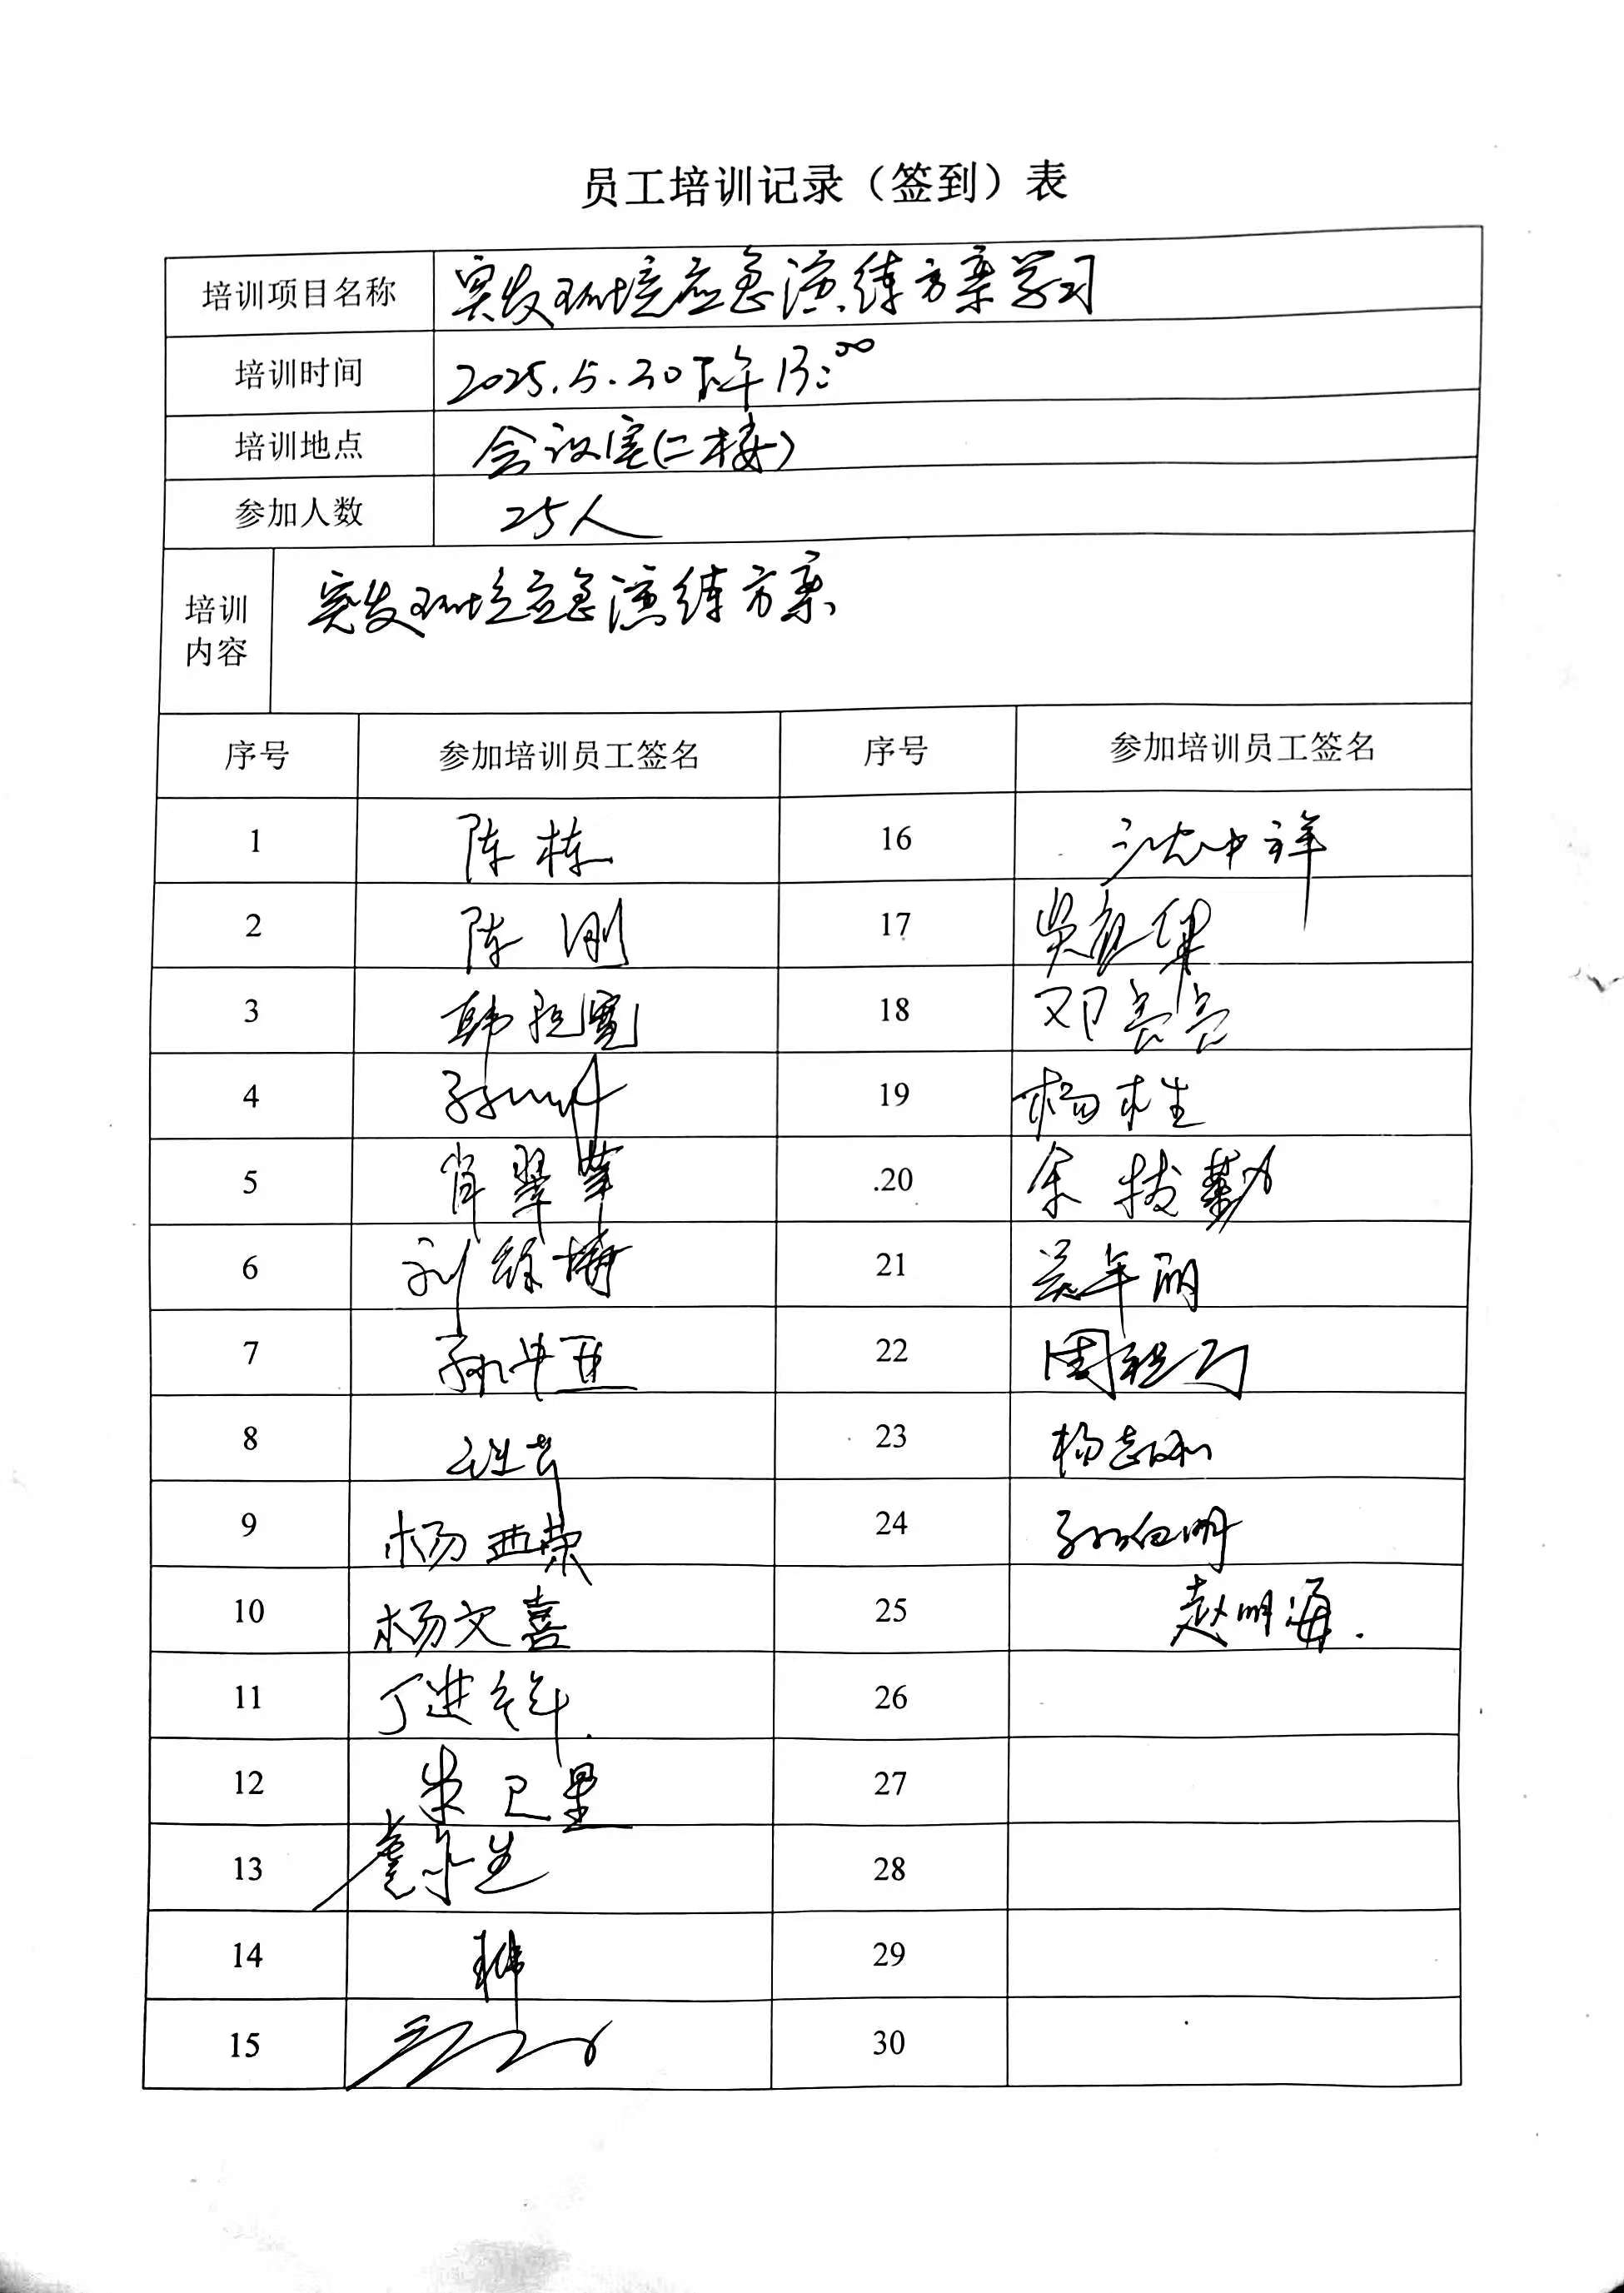 员工培训记录（签到）表
培训项目名称 突发环境应急演练方案学习
培训时间 2025.5.30下午13:00
培训地点 会议室(二楼)
参加人数 25人
培训内容 突发环境应急演练方案
序号 参加培训员工签名 序号 参加培训员工签名
1 陈栋 16 沈中祥
2 陈刚 17 吴
3 韩 18 邓亮亮
4 孙 19 杨桂
5 肖翠苹 .20 余拔勤
6 刘徐博 21 年明
7 孙中亚 22 周祖
8 23 杨志和
9 杨亚荣 24 孙向明
10 杨文喜 25 赵明海.
11 丁进 26
12 朱卫星 27
13 28
14 29
15 30